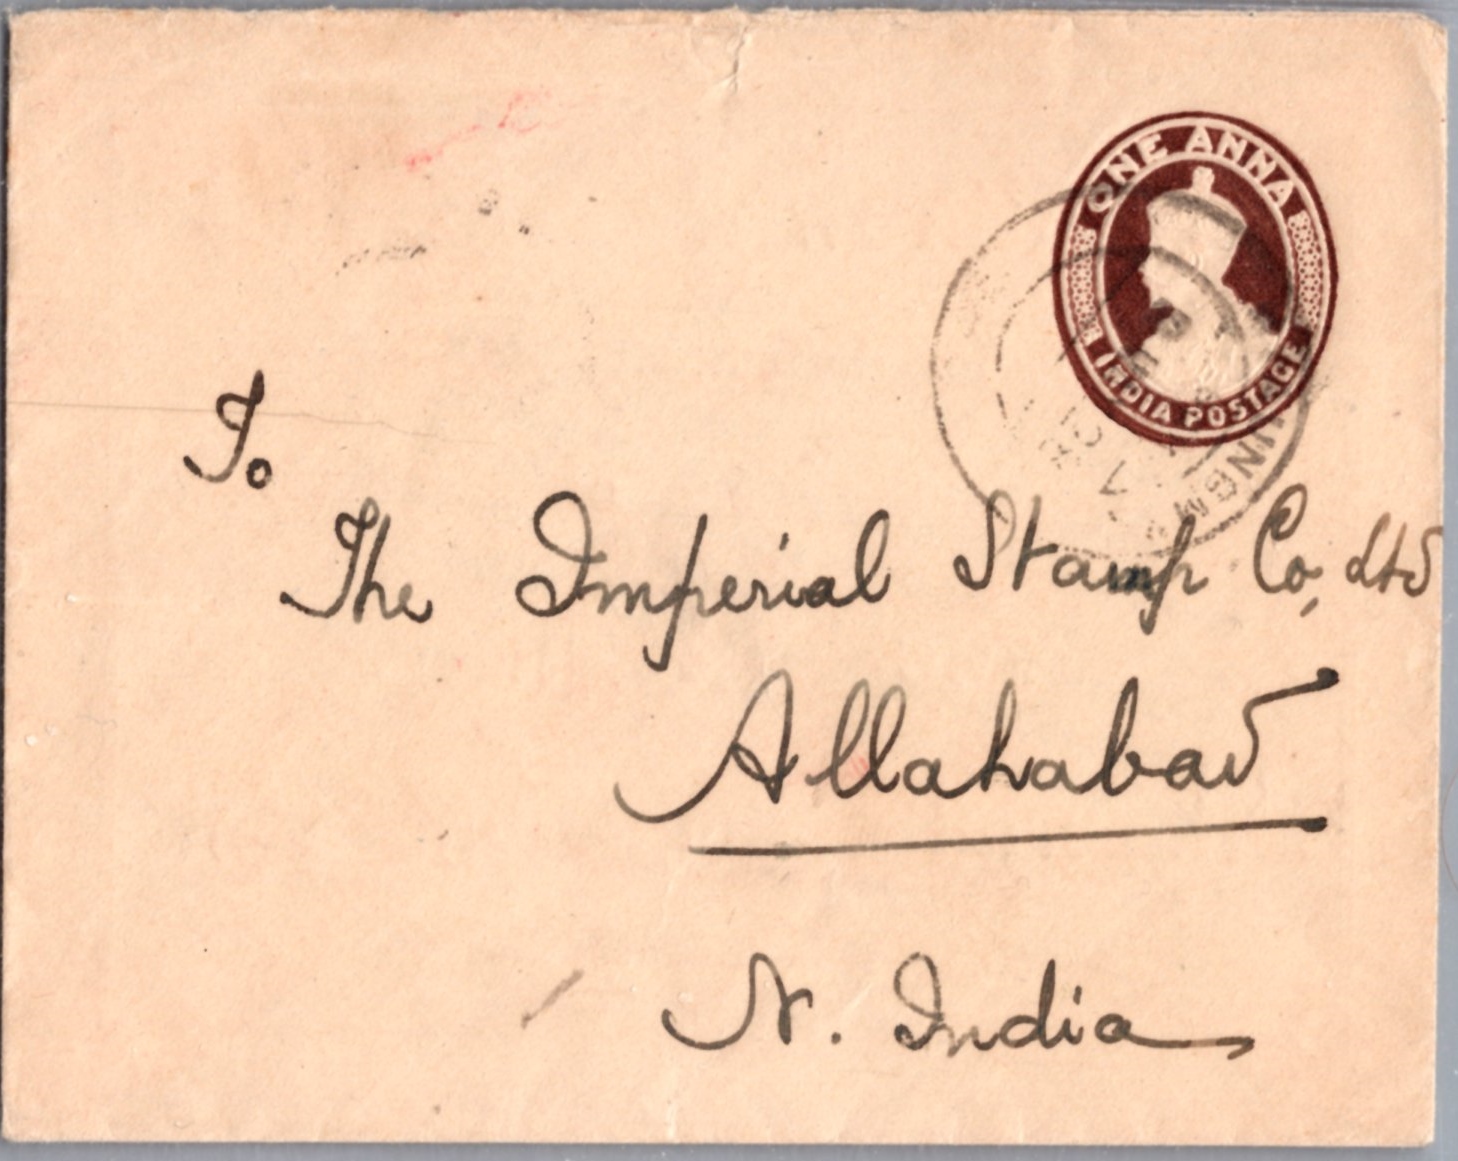 ONE ANNA
INDIA POSTAGE
To
The Imperial Stamp Co, Ltd
Allahabad
N. India